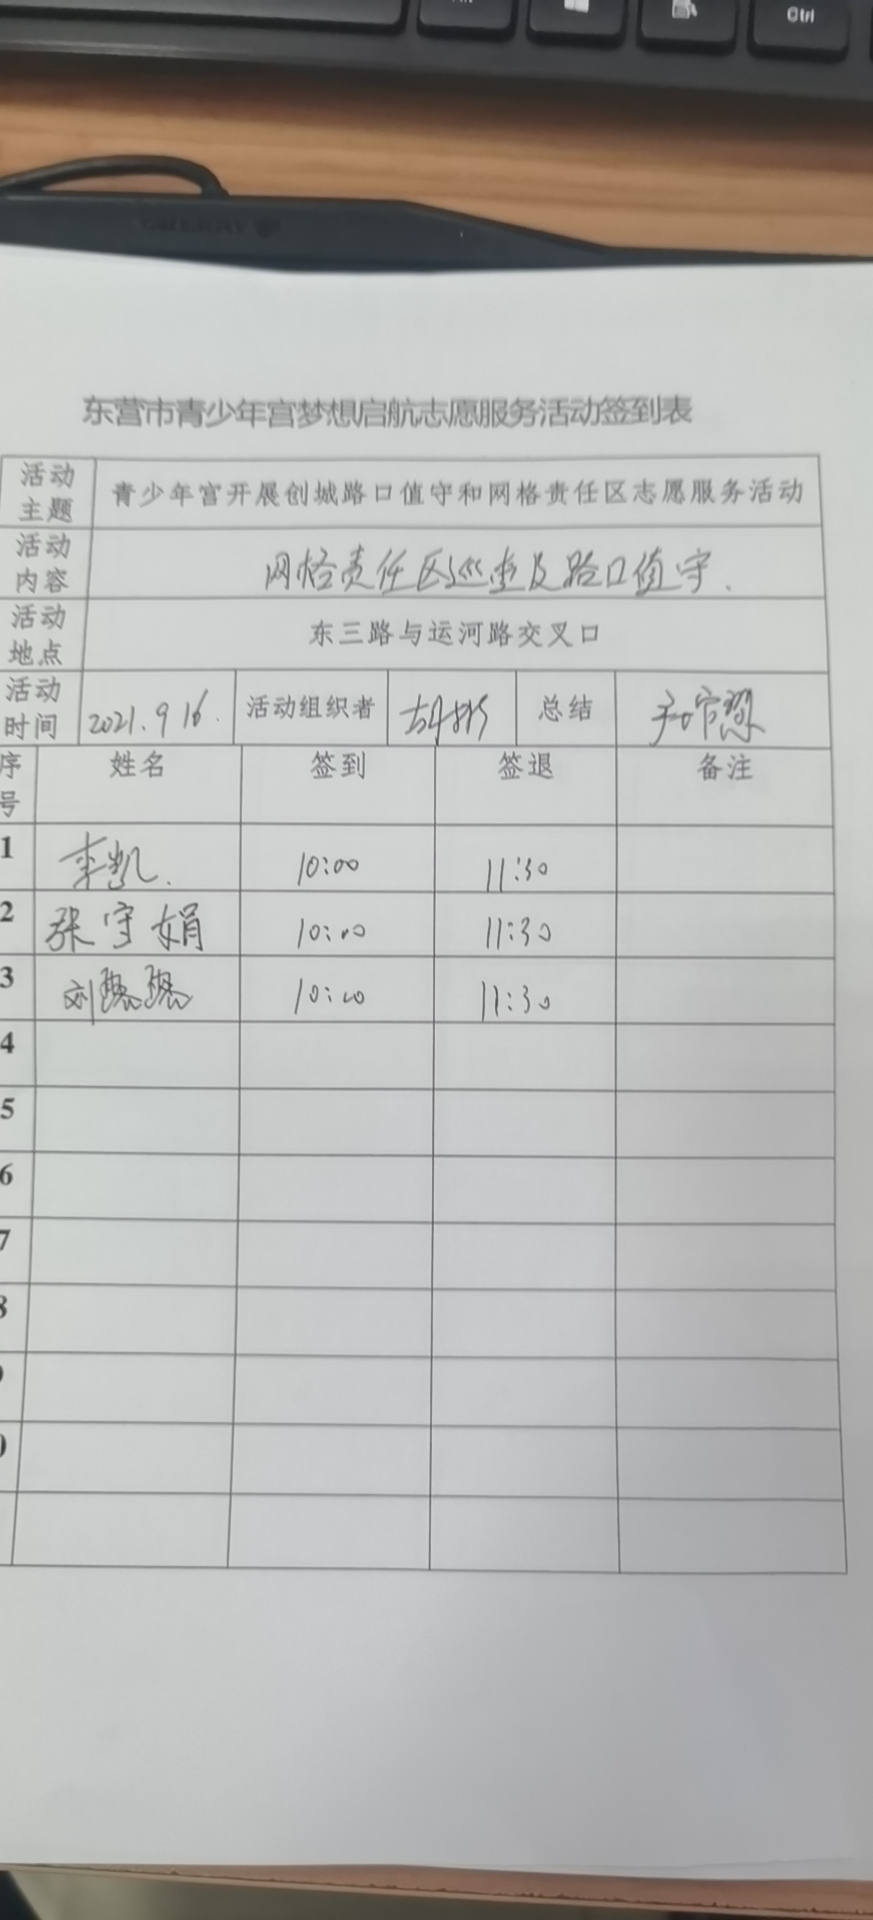 Ctrl
CHERRY
东营市青少年宫梦想启航志愿服务活动签到表
活动主题 青少年宫开展创城路口值守和网格责任区志愿服务活动
活动内容 网格责任区巡查及路口值守.
活动地点 东三路与运河路交叉口
活动时间 2021.9 16. 活动组织者 总结
序号 姓名 签到 签退 备注
1 李凯. 10:00 11:30
2 张守娟 10:00 11:30
3 刘 10:00 11:30
4
5
6
7
8